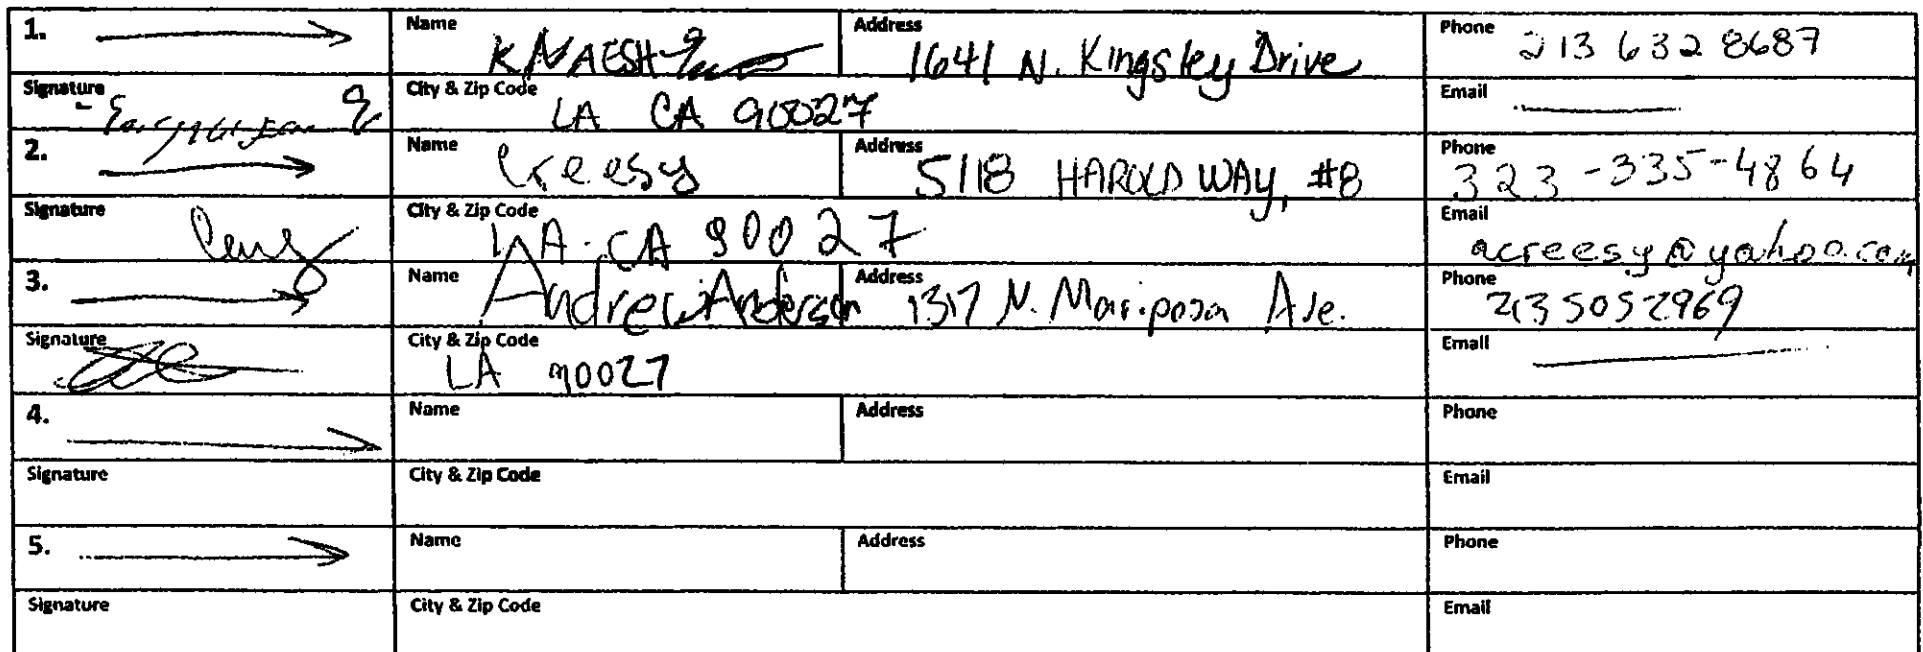 1. Name Address Phone
1641 N. Kingsley Drive 213 632 8687
Signature City & Zip Code Email
LA CA 90027
2. Name Creesy Address 5118 HAROLD WAY, #8 Phone 323-335-4864
Signature City & Zip Code LA CA 90027 Email acreesy@yahoo.com
3. Name Andrew Anderson Address 1317 N. Mariposa Ave. Phone 2135052969
Signature City & Zip Code LA 90027 Email
4. Name Address Phone
Signature City & Zip Code Email
5. Name Address Phone
Signature City & Zip Code Email